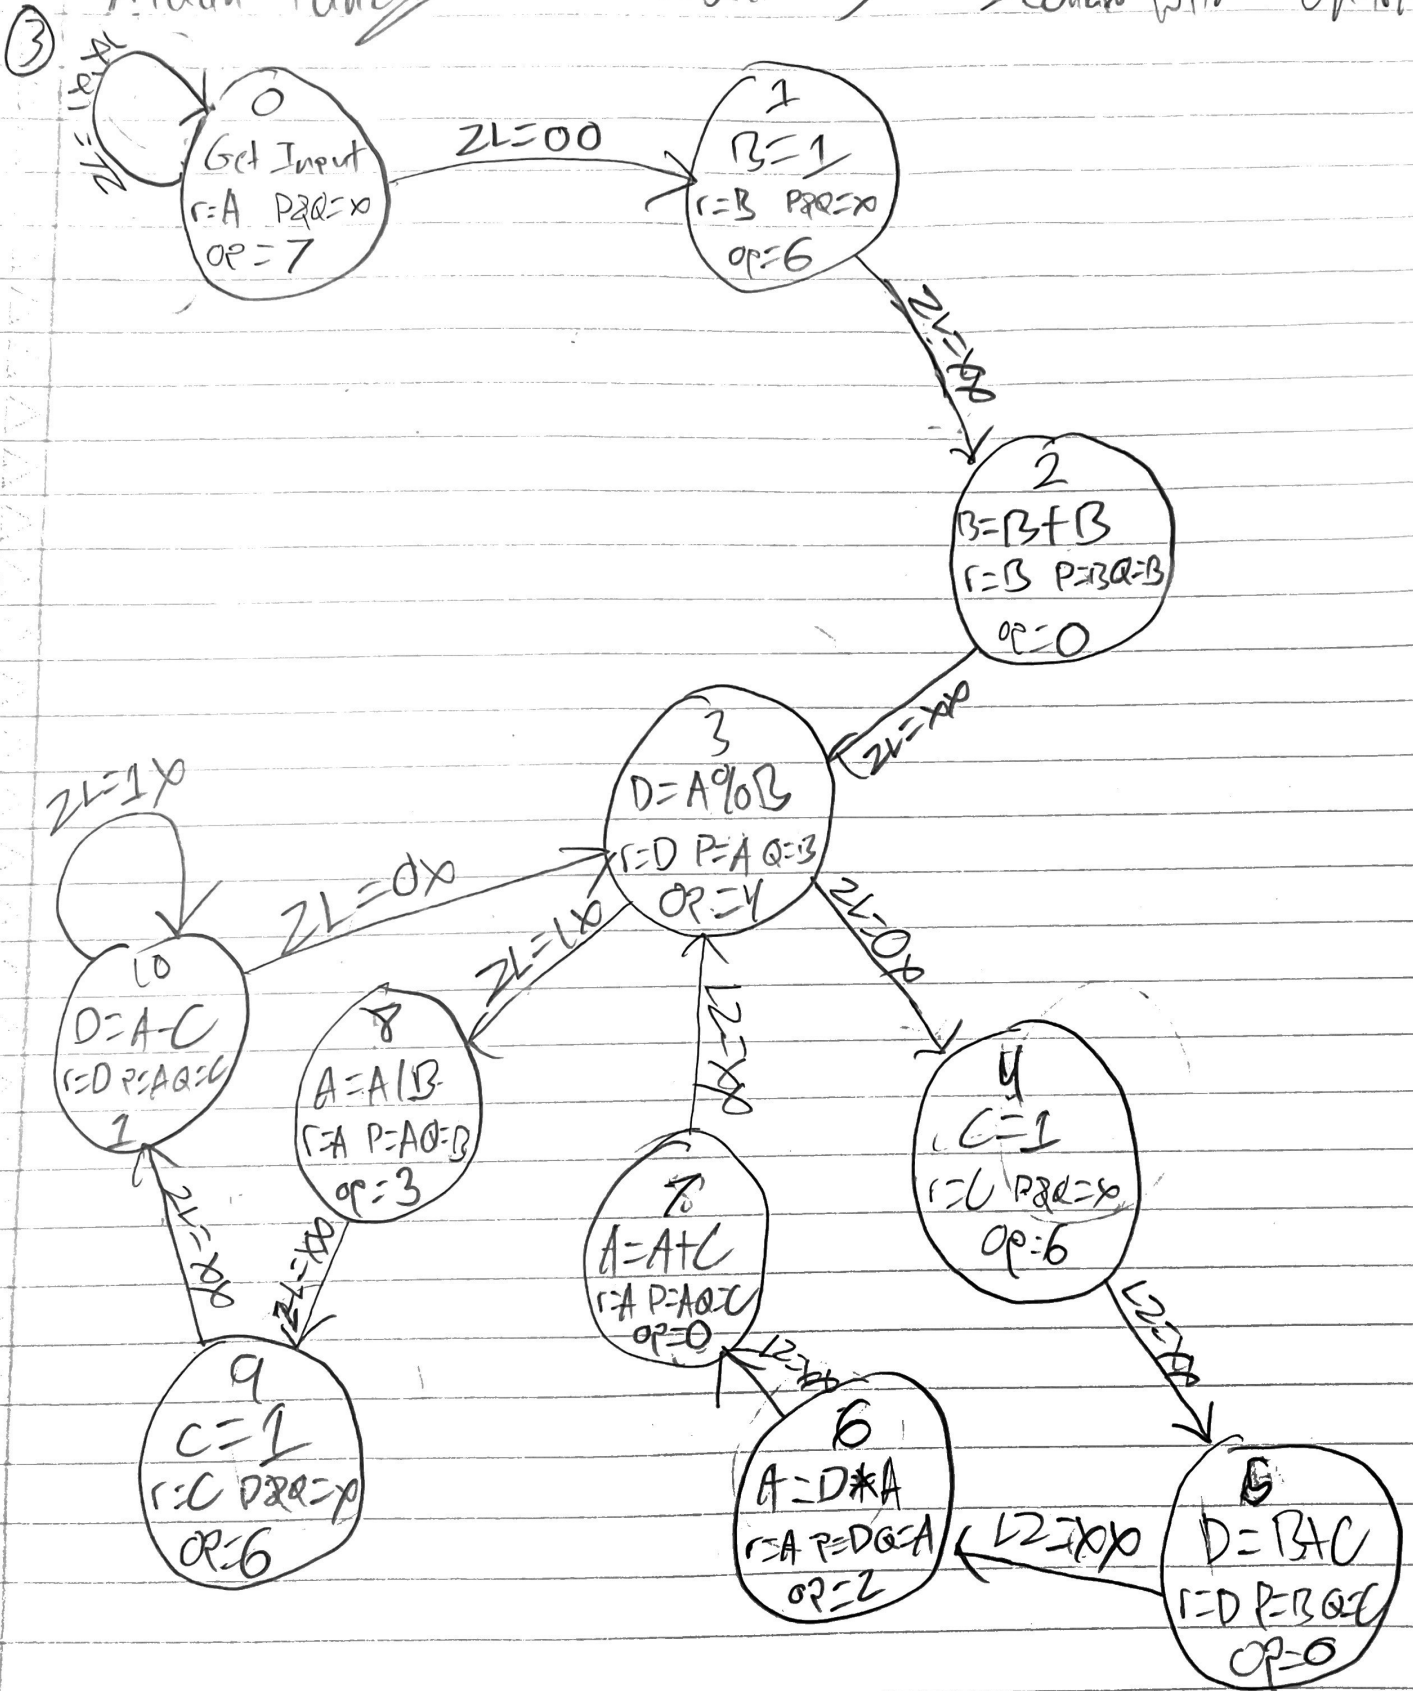 3
0
Get Input
r=A P&Q=x
op=7
ZL=00
1
B=1
r=B P&Q=x
op=6
ZL=xx
2
B=B+B
r=B P=B Q=B
op=0
ZL=xx
3
D=A%B
r=D P=A Q=B
op=4
ZL=1X
ZL=0X
ZL=1X
ZL=0X
10
D=A-C
r=D P=A Q=C
1
8
A=A/B
r=A P=A Q=B
op=3
LZ=XX
4
C=1
r=C P&Q=x
op=6
7
A=A+C
r=A P=A Q=C
op=0
ZL=XX
ZL=XX
9
C=1
r=C P&Q=x
op=6
6
A=D*A
r=A P=D Q=A
op=2
LZ=XX
5
D=B+C
r=D P=B Q=C
op=0